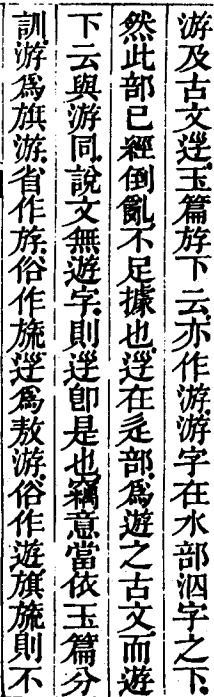 游及古文逕玉篇斿下云亦作游游字在水部泅字之下
然此部已經倒亂不足據也逕在辵部爲遊之古文而遊
下云與游同說文無遊字則逕卽是也竊意當依玉篇分
訓游爲旗游省作斿俗作旒逕爲敖游俗作遊旗旒則不